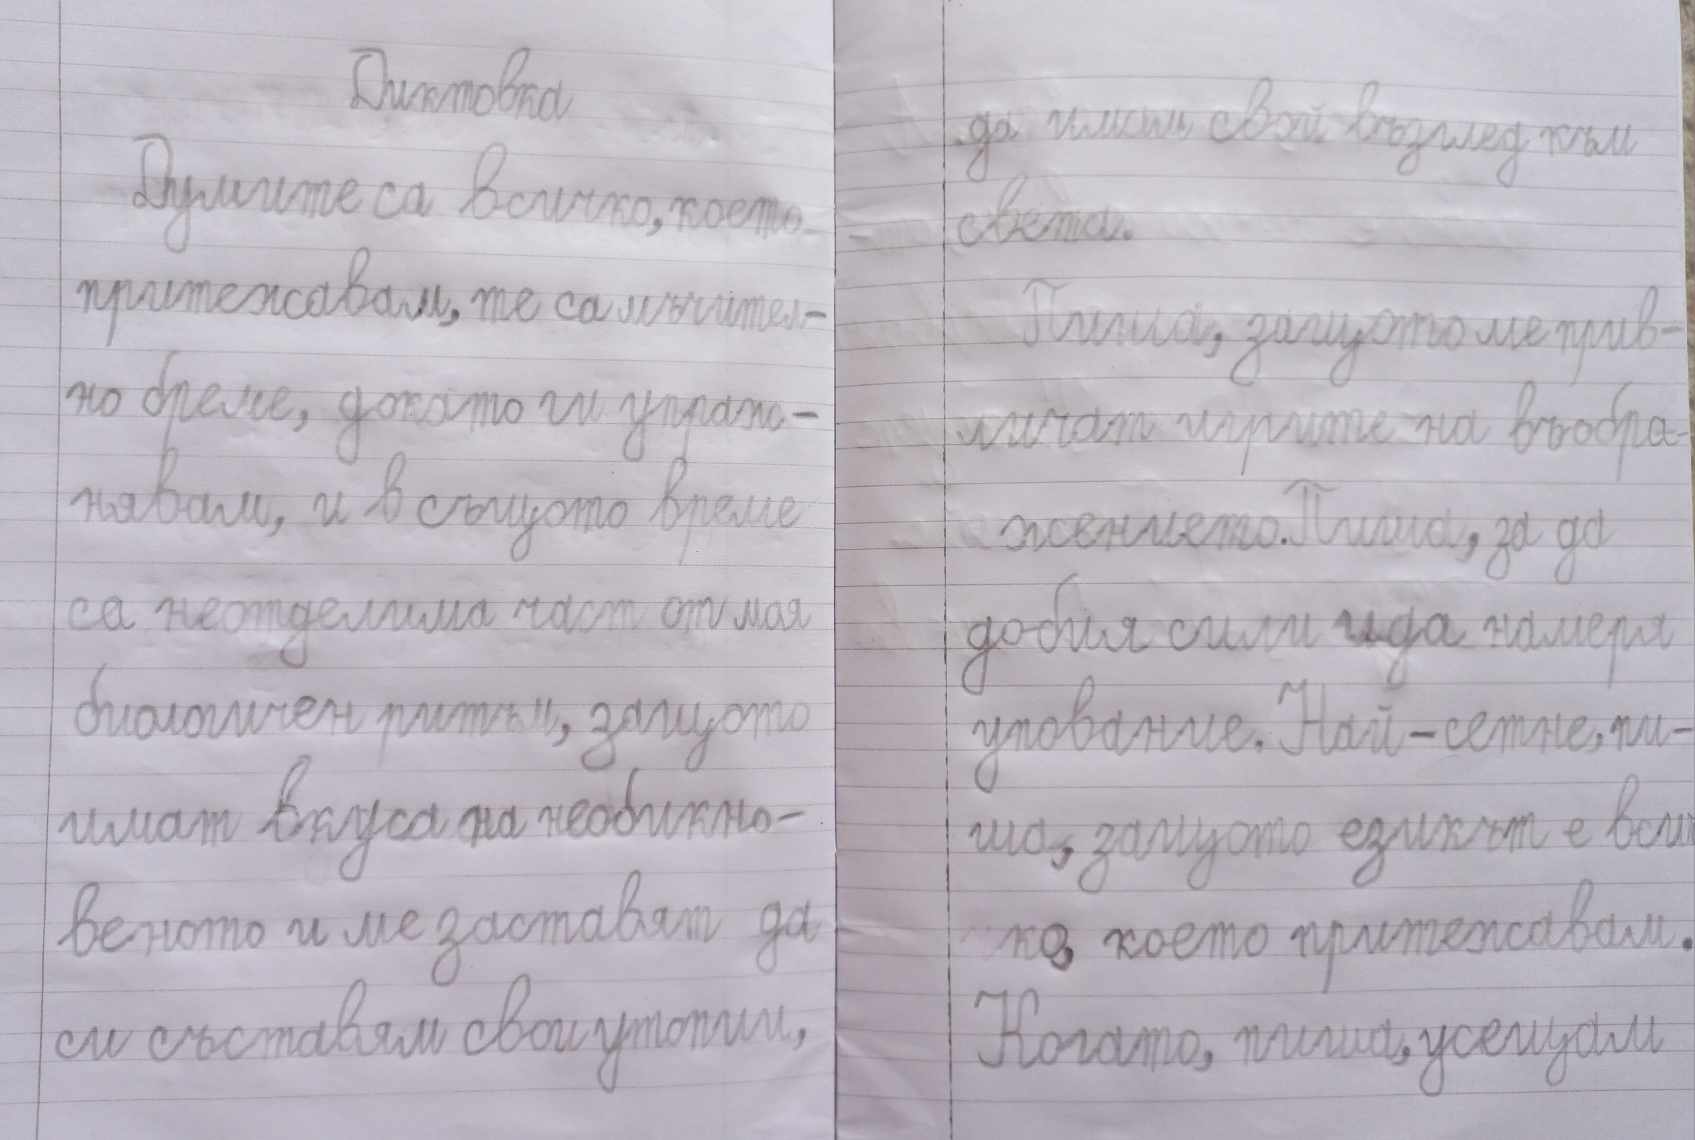 Диктовка
Думите са всичко, което
притежавам, те са мъчител-
но бреме, докато ги упраж-
нявам, и в същото време
са неотделима част от моя
биологичен ритъм, защото
имат вкуса на необикно-
веното и ме заставят да
си съставям свои утопии,
да имам свой възглед към
света.
Пиша, защото ме прив-
личат игрите на въобра-
жението. Пиша, за да
добия сили и да намеря
упование. Най-сетне, пи-
ша, защото езикът е вси
ко, което притежавам.
Когато, пиша, усещам